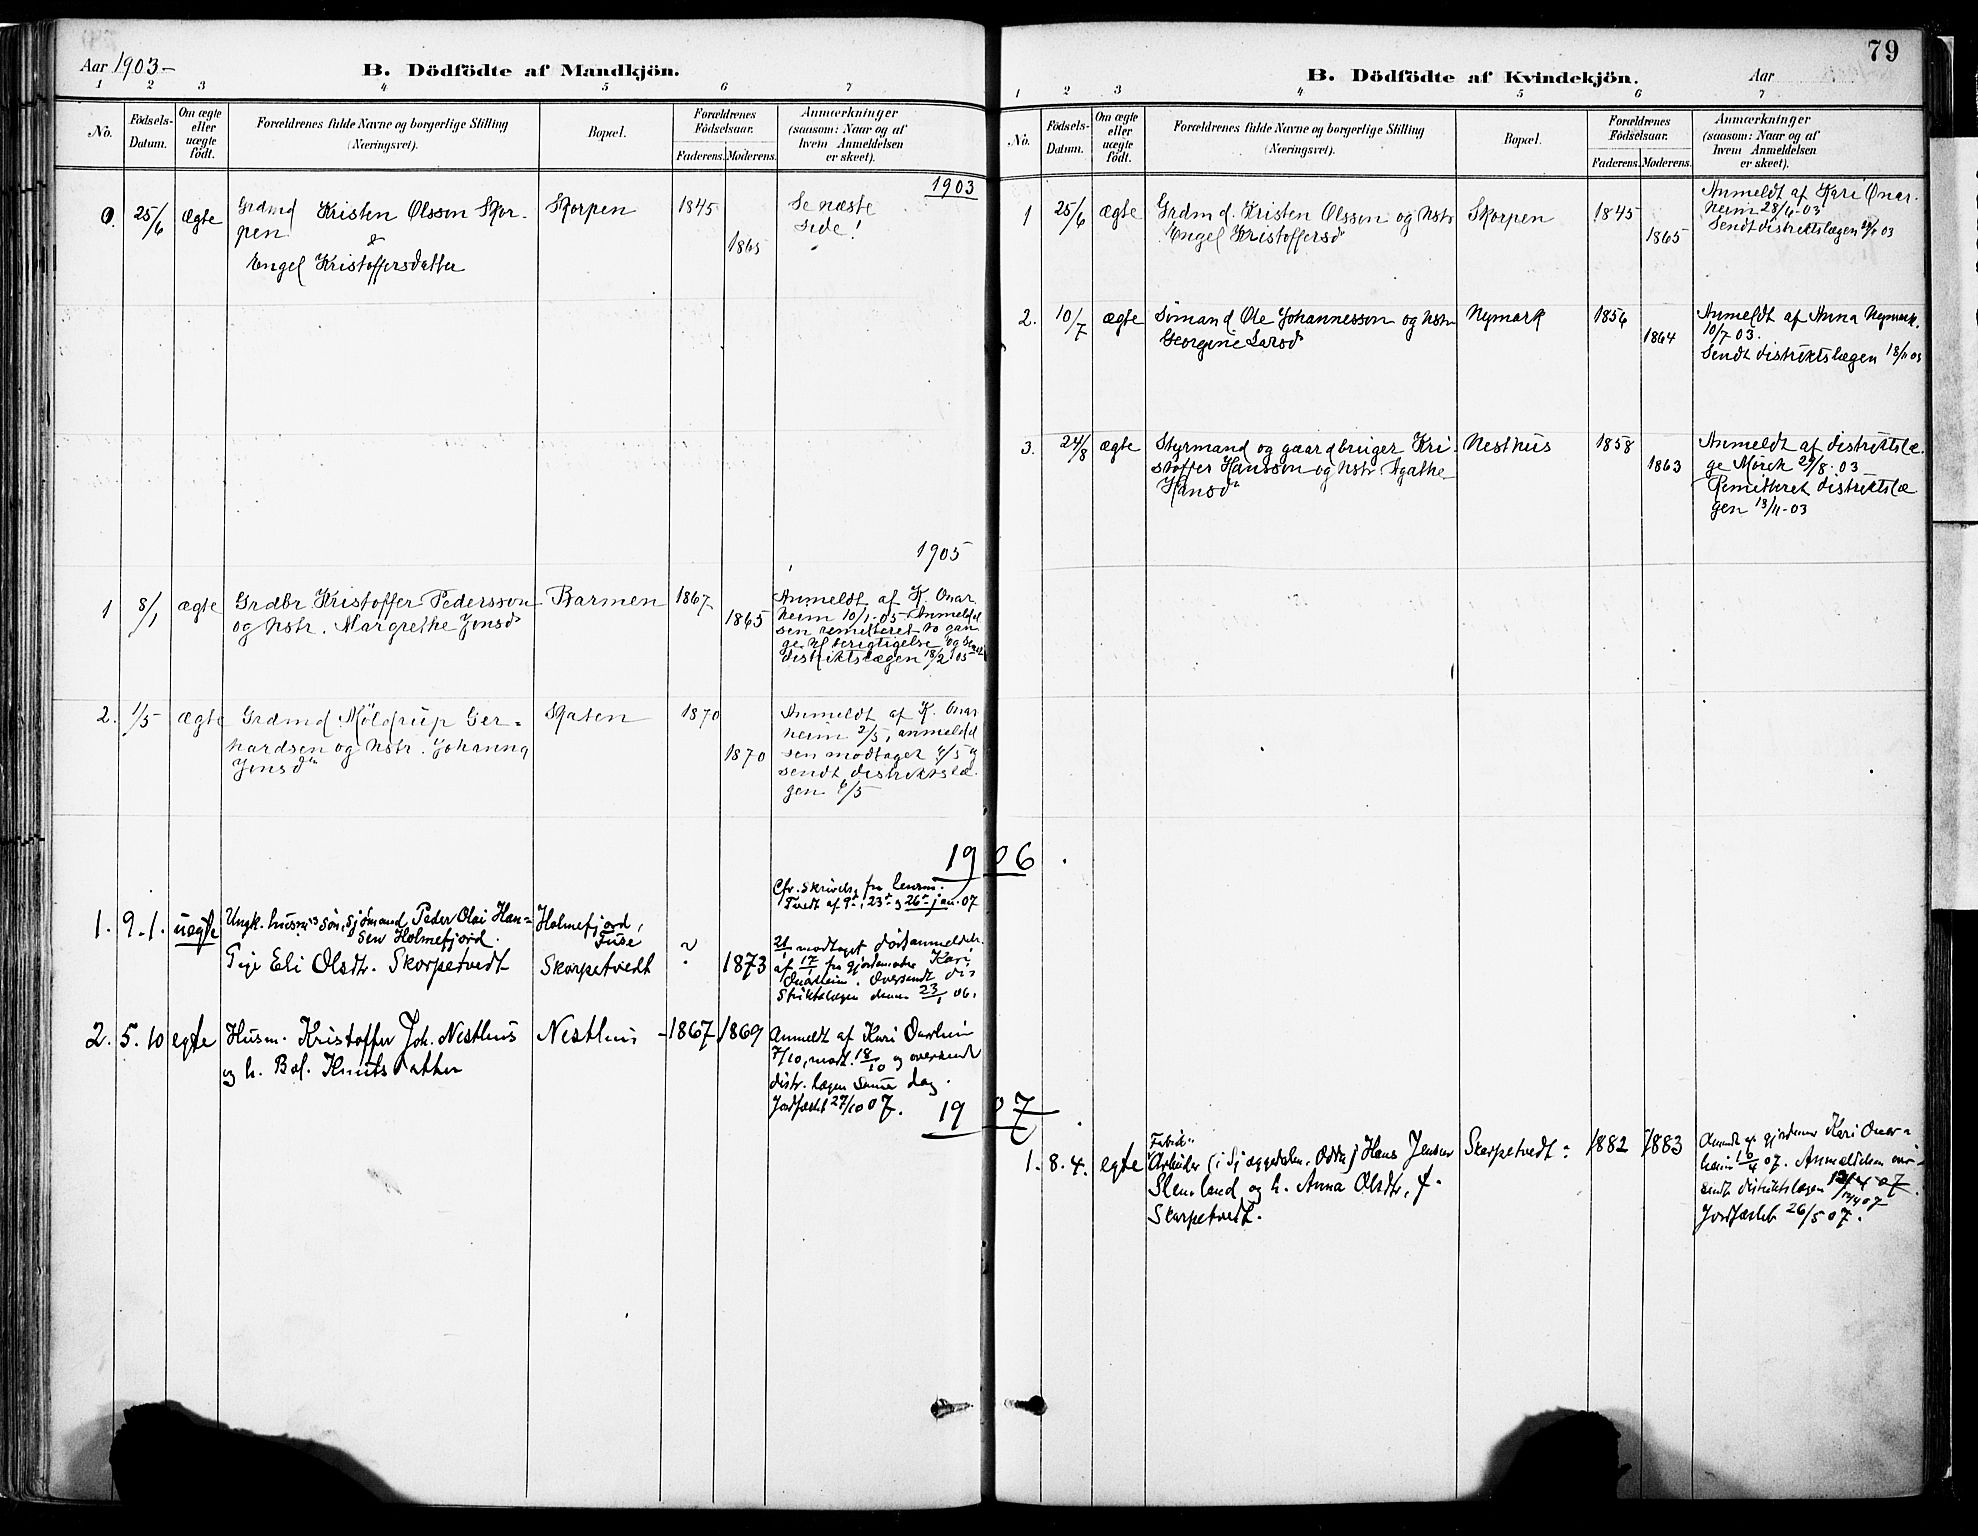 Aar 1903-
B. Dödfödte af Mandkjön.
1 2 3 4 5 6 7
No.
Födsels-
Datum.
Om ægte
eller
uægte
födt.
Forældrenes fulde Navne og borgerlige Stilling
(Næringsvei).
Bopæl.
Forældrenes
Födselsaar.
Faderens. Moderens.
Anmærkninger
(saasom: Naar og af
hvem Anmeldelsen
er skeet).
1903
0. 25/6 Ægte
Grdmd Kristen Olsson Skor-
pen
&
Engel Kristoffersdatter
Skorpen
1845
1865
Se næste
side!
1905
1 8/1 ægte
Grdbr Kristoffer Pedersson
og hstr. Margrethe Jensd
Barmen
1867
1865
Anmeldt af K. Onar
heim 10/1-05 Anmeldel
sen remitteret to gan
ge til berigtigelse og sendt
distriktslægen 18/2 05
2. 1/5 ægte
Grdmd Möldrup Ger-
hardsen og hstr. Johanna
Jensd
Skaten
1870
1870
Anmeldt af K. Onar
heim 2/5, anmeldel
sen modtaget
sendt distriktslæ
gen 6/5
1906
1. 9. 1. uægte
Ungk. husms søn, sjömand Peder Olai Han-
sen Holmefjord.
Pige Eli Olsdtr. Skorpetvedt
Holmefjord,
Fuse
Skorpetvedt
?
1873
Cfr. skrivelse fra lensm.
Tvedt af 9de, 23de og 26de jan. 07
modtaget dødsanmeldels.
af 17/1 fra gjordemoder Kari
Onarheim. Oversendt dis
striktslægen denne 23/1 06.
2. 5. 10 egte
Husm. Kristoffer Joh. Nesthus
og h. Bol. Knutsdatter
Nesthus
1867 1869
Anmeldt af Kari Onarheim
7/10, modt. 18/10 og oversendt
distr. lægen samme dag.
Jordfæstet 27/10 07.
1907
79
B. Dödfödte af Kvindekjön.
Aar
1 2 3 4 5 6 7
No.
Födsels-
Datum.
Om ægte
eller
uægte
födt.
Forældrenes fulde Navne og borgerlige Stilling
(Næringsvei).
Bopæl.
Forældrenes
Födselsaar.
Faderens. Moderens.
Anmærkninger
(saasom: Naar og af
hvem Anmeldelsen
er skeet).
1 25/6 ægte
Grdmd. Kristen Olsson og hstr
Engel Kristoffersd
Skorpen
1845
1865
Anmeldt af Kari Onar-
heim 28/6-03
Sendt distriktslægen
2. 10/7 ægte
Sömand Ole Johannesson og hstr
Georgine Larsd
Nymark
1856
1864
Anmeldt af Anna Nymark.
10/7 03.
Sendt distriktslægen 18/11 03
3. 24/8 ægte
Styrmand og gaardbruger Kri-
stoffer Hansson og hstr. Agathe
Hansd
Nesthus
1858
1863
Anmeldt af distriktslæ-
ge Mörck 29/8-03
Remitteret distriktslæ
gen 13/11-03
1. 8. 4. egte
Fabrik
Arbeider (i Sjæggedalen, Odda) Hans Jensen
og h. Anna Olsdtr, f.
Skorpetvedt.
Skorpetvedt
1882 1883
Anmeldt af gjordemor Kari Onar-
heim 10/4 07. Anmeldelsen over-
sendt distriktslægen 12/4 07.
12/4 07
Jordfæstet 26/5 07.